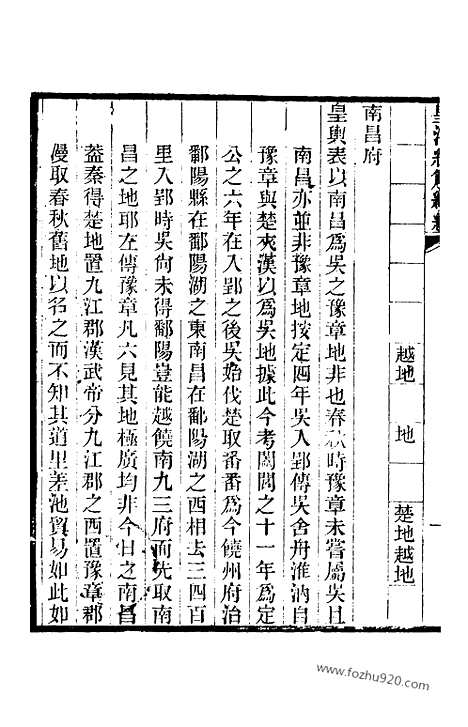 皇清經解續編
越地　地　楚地越地
南昌府
皇輿表以南昌爲吳之豫章地非也春秋時豫章未嘗屬吳且
南昌亦並非豫章地按定四年吳人郢傳吳舍舟淮汭自
豫章與楚夾漢以爲吳地據此今考闔閭之十一年爲定
公之六年在入郢之後吳始伐楚取番番爲今饒州府治
鄱陽縣在鄱陽湖之東南昌在鄱陽湖之西相去三四百
里入郢時吳尙未得鄱陽豈能越饒南九三府而先取南
昌之地耶左傳豫章凡六見其地極廣均非今日之南昌
蓋秦得楚地置九江郡漢武帝分九江郡之西置豫章郡
僈取春秋舊地以名之而不知其道里差池貿易如此如
www.fozhu920.com